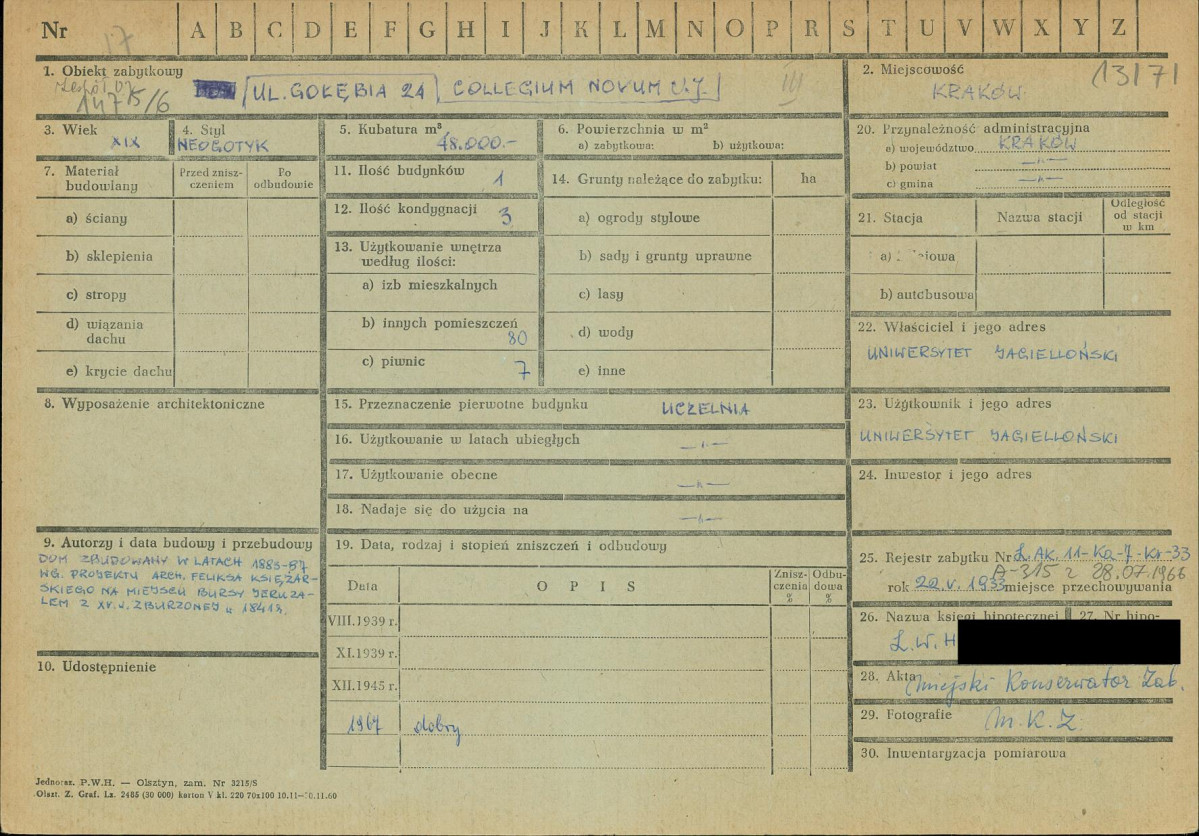 Nr 17 A B C D E F G H I J K L M N O P R S T U V W X Y Z
1. Obiekt zabytkowy
UL. GOŁĘBIA 24 COLLEGIUM NOVUM U.J.
III
2. Miejscowość
13171
KRAKÓW
3. Wiek
XIX
4. Styl
NEOGOTYK
5. Kubatura m³
48.000.-
6. Powierzchnia w m²
a) zabytkowa: b) użytkowa:
7. Materiał budowlany
Przed znisz-
czeniem
Po
odbudowie
a) ściany
b) sklepienia
c) stropy
d) wiązania
dachu
e) krycie dachu
8. Wyposażenie architektoniczne
9. Autorzy i data budowy i przebudowy
DOM ZBUDOWANY W LATACH 1883-87
WG. PROJEKTU ARCH. FELIKSA KSIĘŻAR-
SKIEGO NA MIEJSCU BURSY JERUZA-
LEM Z XV.W. ZBURZONEJ w 1841r.
10. Udostępnienie
11. Ilość budynków
1
12. Ilość kondygnacji
3
13. Użytkowanie wnętrza
według ilości:
a) izb mieszkalnych
b) innych pomieszczeń
80
c) piwnic
7
14. Grunty należące do zabytku: ha
a) ogrody stylowe
b) sady i grunty uprawne
c) lasy
d) wody
e) inne
15. Przeznaczenie pierwotne budynku UCZELNIA
16. Użytkowanie w latach ubiegłych —"—
17. Użytkowanie obecne —"—
18. Nadaje się do użycia na —"—
19. Data, rodzaj i stopień zniszczeń i odbudowy
Data OPIS
Znisz-
czenia
%
Odbu-
dowa
%
VIII.1939 r.
XI.1939 r.
XII.1945 r.
1967 dobry
20. Przynależność administracyjna
a) województwo KRAKÓW
b) powiat —"—
c) gmina —"—
21. Stacja Nazwa stacji
Odległość
od stacji
w km
b) autobusowa
22. Właściciel i jego adres
UNIWERSYTET JAGIELLOŃSKI
23. Użytkownik i jego adres
UNIWERSYTET JAGIELLOŃSKI
24. Inwestor i jego adres
25. Rejestr zabytku Nr L.AK. 11-Ka-7-Kr-33
A-315 z 28.07.1966
rok 22.V.1933 miejsce przechowywania
26. Nazwa księgi hipotecznej 27. Nr hipo-
L.W.H
28. Akta Miejski Konserwator Zab.
29. Fotografie M.K.Z.
30. Inwentaryzacja pomiarowa
Jednoraz. P.W.H. — Olsztyn, zam. Nr 3215/S
Olszt. Z. Graf. Lz. 2485 (30 000) karton V kl. 220 70x100